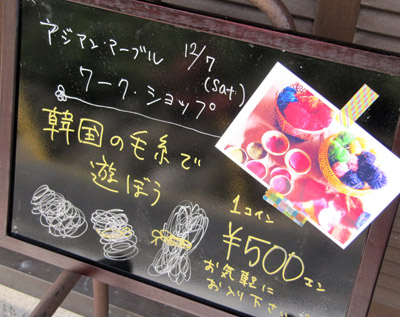 アジアン・アーブル
12/7
(Sat)
ワーク・ショップ
韓国の毛糸で
遊ぼう
1コイン
¥500エン
お気軽に
お入り下さい